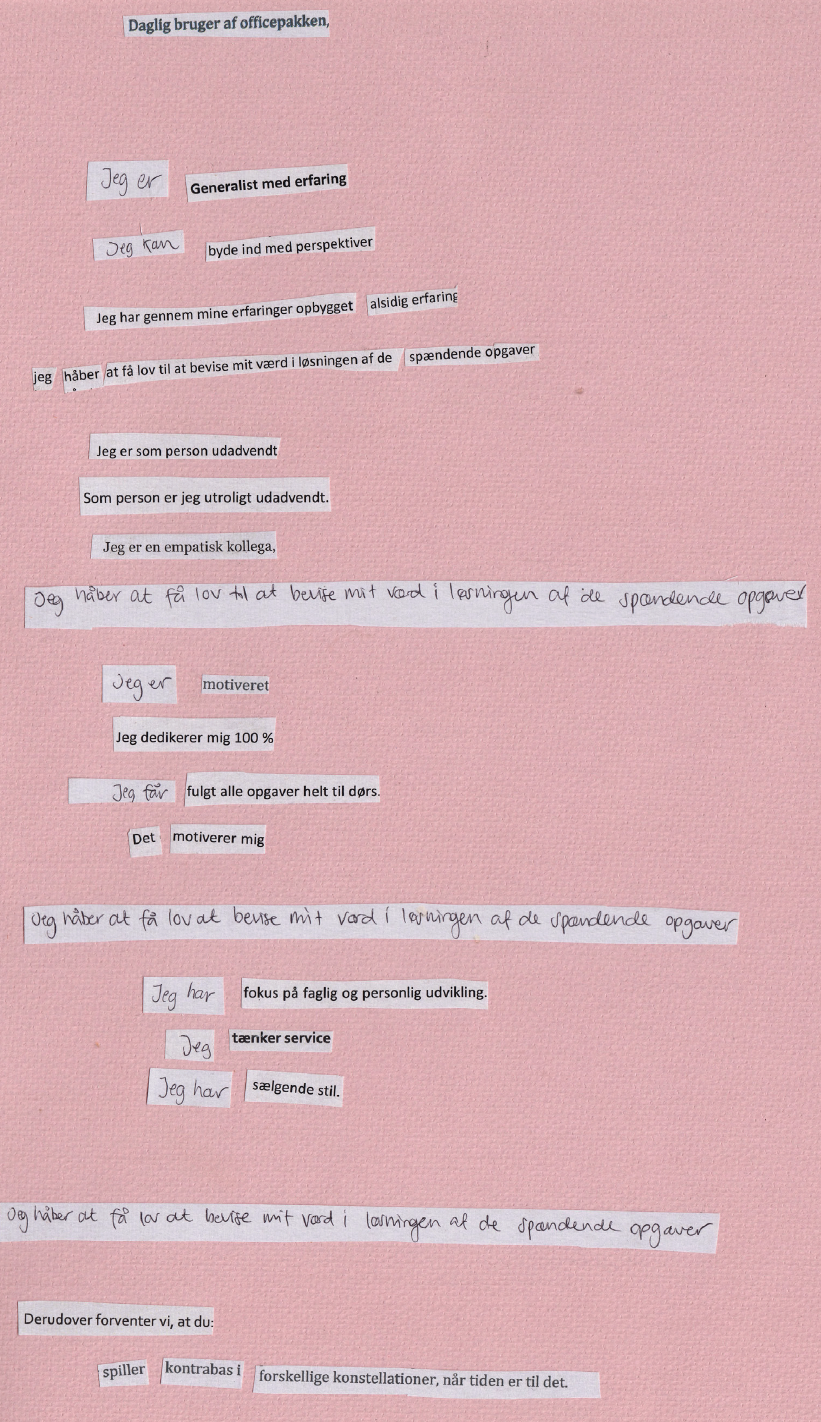 Daglig bruger af officepakken,
Jeg er Generalist med erfaring
Jeg kan byde ind med perspektiver
Jeg har gennem mine erfaringer opbygget alsidig erfaring
jeg håber at få lov til at bevise mit værd i løsningen af de spændende opgaver
Jeg er som person udadvendt
Som person er jeg utroligt udadvendt.
Jeg er en empatisk kollega,
Jeg håber at få lov til at bevise mit værd i løsningen af de spændende opgaver
Jeg er motiveret
Jeg dedikerer mig 100 %
Jeg får fulgt alle opgaver helt til dørs.
Det motiverer mig
Jeg håber at få lov at bevise mit værd i løsningen af de spændende opgaver
Jeg har fokus på faglig og personlig udvikling.
Jeg tænker service
Jeg har sælgende stil.
Jeg håber at få lov at bevise mit værd i løsningen af de spændende opgaver
Derudover forventer vi, at du:
spiller kontrabas i forskellige konstellationer, når tiden er til det.